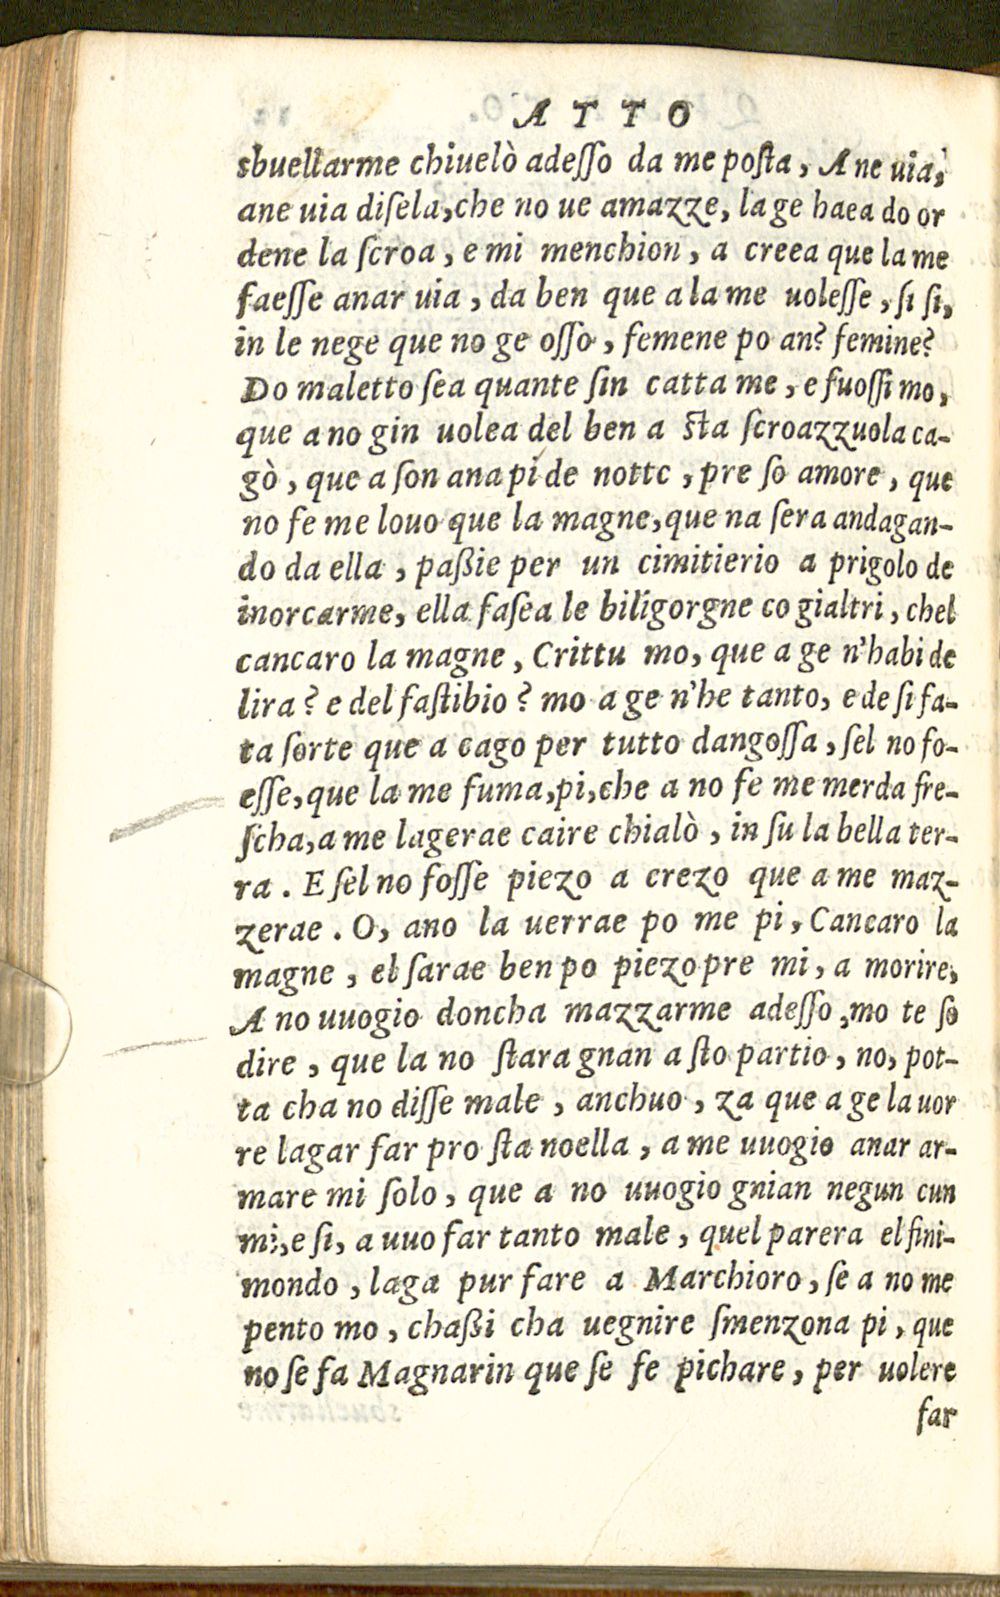 ATTO
sbuellarme chiuelò adeſſo da me poſta, Ane uia,
ane uia diſela, che no ue amazze, la ge haea do or
dene la ſcroa, e mi menchion, a creea que la me
faeſſe anar uia, da ben que a la me uoleſſe, ſi ſi,
in le nege que no ge oſſo, femene po an? femine?
Do maletto ſea quante ſin catta me, e fuoſſi mo,
que a no gin uolea del ben a ſta ſcroazzuola ca-
gò, que a ſon ana pi de notte, pre ſo amore, que
no fe me louo que la magne, que na ſera andagan-
do da ella, paßie per un cimitierio a prigolo de
inorcarme, ella faſea le biligorgne co gialtri, chel
cancaro la magne, Crittu mo, que a ge n'habi de
lira? e del faſtibio? mo a ge n'he tanto, e de ſi fa-
ta ſorte que a cago per tutto dangoſſa, ſel no fo-
eſſe, que la me fuma, pi, che a no fe me merda fre-
ſcha, a me lagerae caire chialò, in ſu la bella ter-
ra. E ſel no foſſe piezo a crezo que a me maz-
zerae. O, ano la uerrae po me pi, Cancaro la
magne, el ſarae ben po piezo pre mi, a morire,
A no uuogio doncha mazzarme adeſſo, mo te ſo
dire, que la no ſtara gnan a ſto partio, no, pot-
ta cha no diſſe male, anchuo, za que a ge la uor
re lagar far pro ſta noella, a me uuogio anar ar-
mare mi ſolo, que a no uuogio gnian negun cun
mi, e ſi, a uuo far tanto male, quel parera el fini-
mondo, laga pur fare a Marchioro, ſe a no me
pento mo, chaßi cha uegnire ſmenzona pi, que
no ſe fa Magnarin que ſe fe pichare, per uolere
far